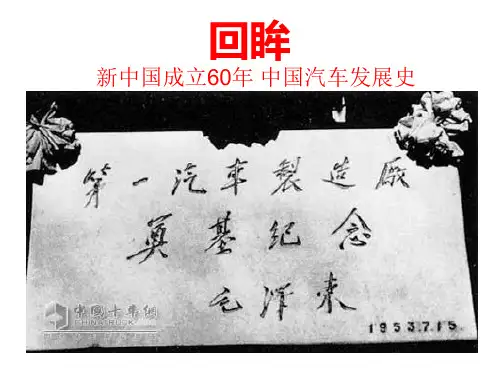 回眸
新中国成立60年 中国汽车发展史
第一汽車製造廠
奠基紀念
毛澤东
1953.7.15.
中国卡车网